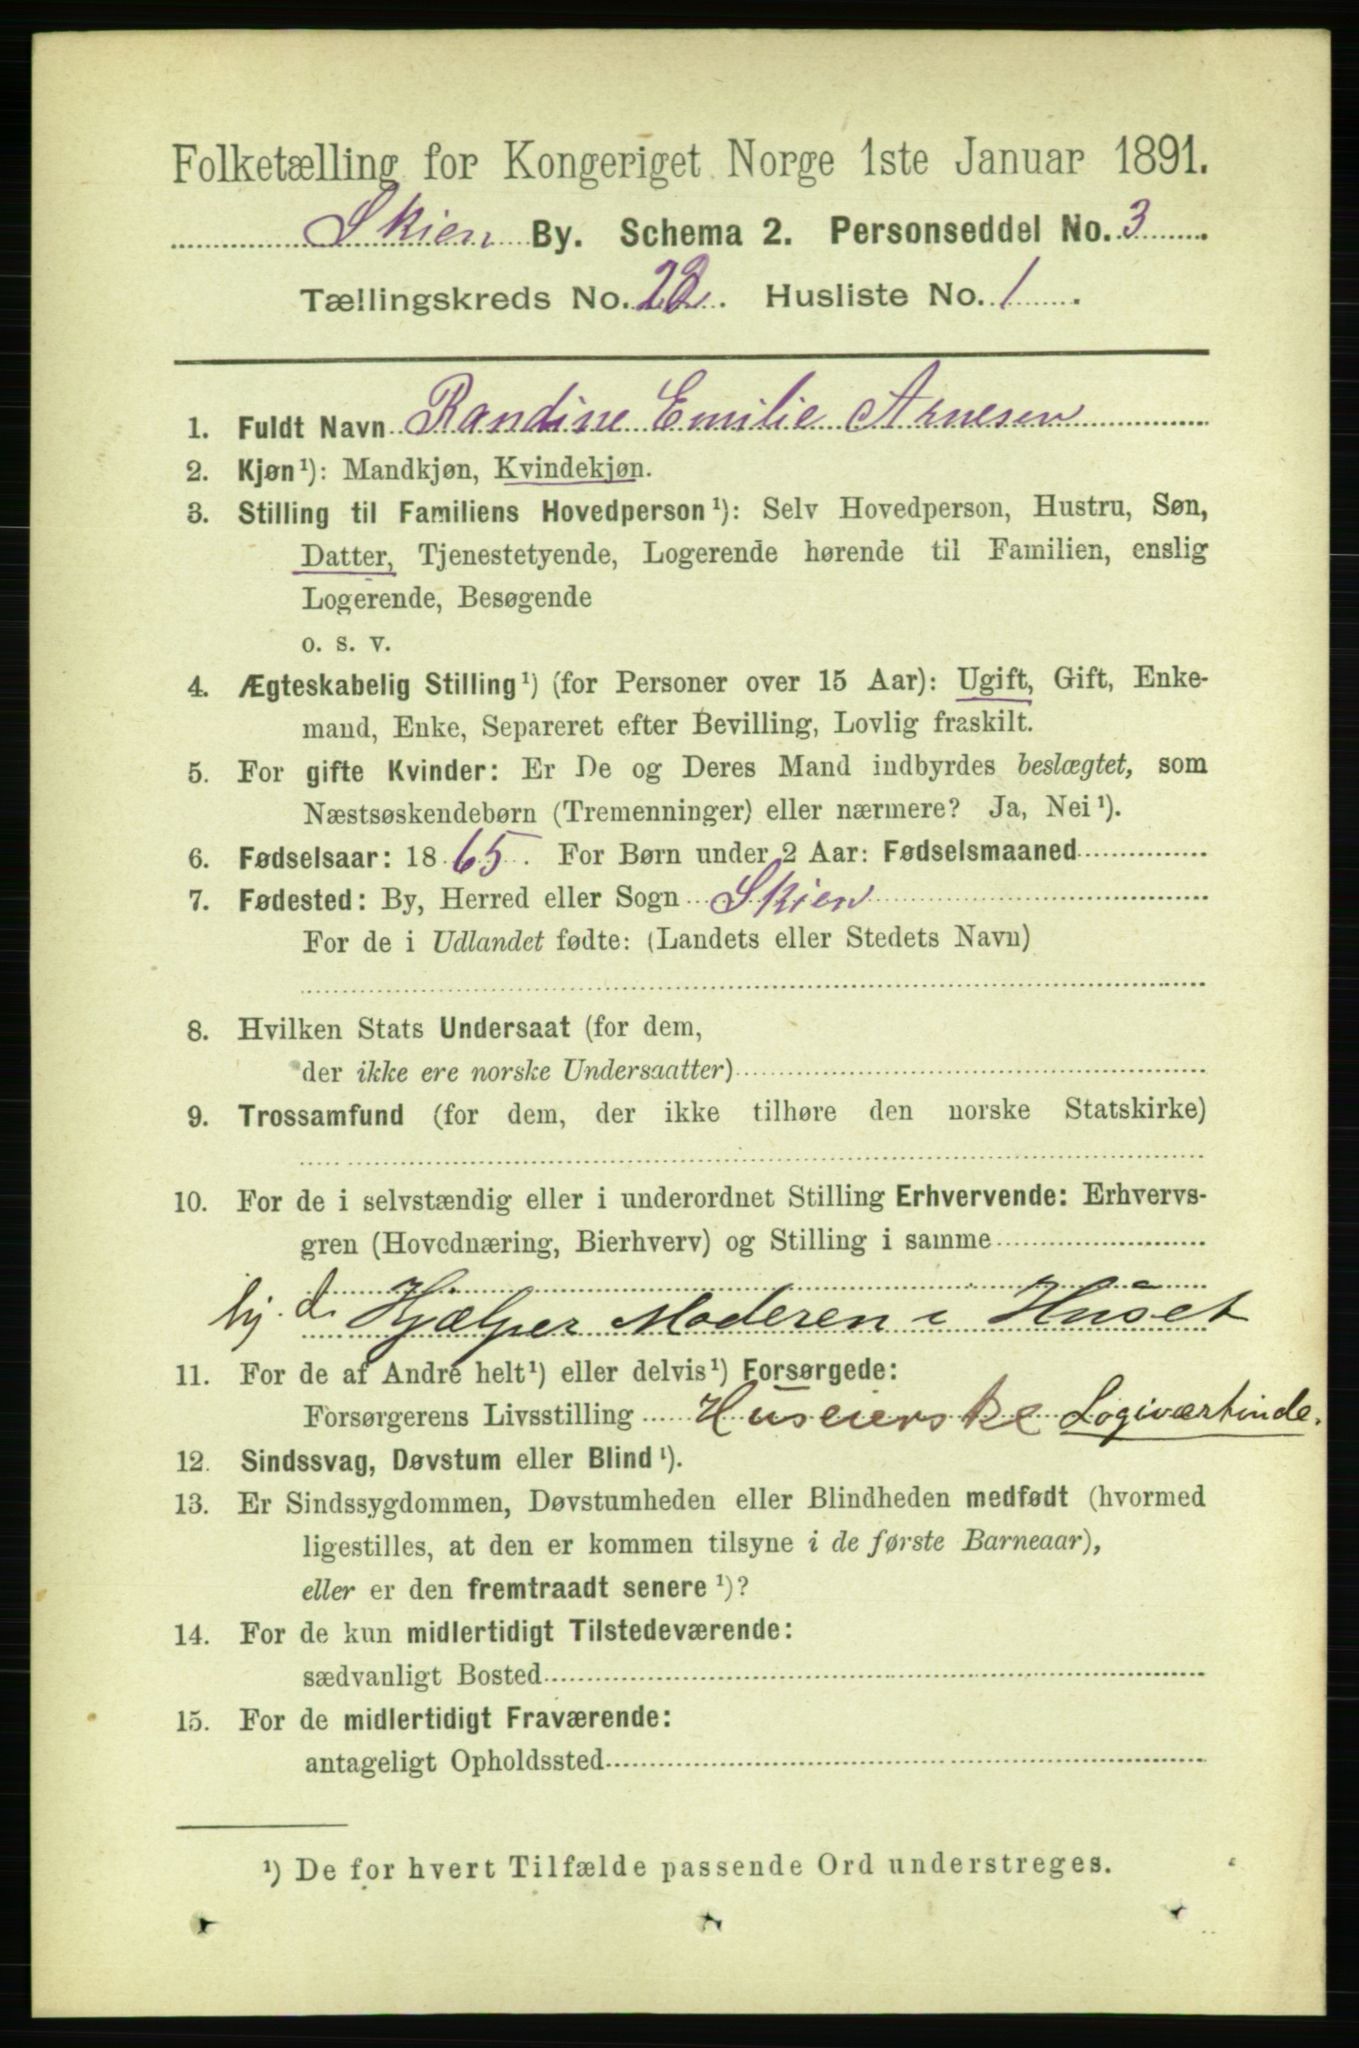 Folketælling for Kongeriget Norge 1ste Januar 1891.
Skien By. Schema 2. Personseddel No. 3
Tællingskreds No. 22. Husliste No. 1.
1. Fuldt Navn Randine Emilie Arnesen
2. Kjøn¹): Mandkjøn, Kvindekjøn.
3. Stilling til Familiens Hovedperson¹): Selv Hovedperson, Hustru, Søn,
Datter, Tjenestetyende, Logerende hørende til Familien, enslig
Logerende, Besøgende
o. s. v.
4. Ægteskabelig Stilling¹) (for Personer over 15 Aar): Ugift, Gift, Enke-
mand, Enke, Separeret efter Bevilling, Lovlig fraskilt.
5. For gifte Kvinder: Er De og Deres Mand indbyrdes beslægtet, som
Næstsøskendebørn (Tremenninger) eller nærmere? Ja, Nei¹).
6. Fødselsaar: 1865. For Børn under 2 Aar: Fødselsmaaned
7. Fødested: By, Herred eller Sogn Skien
For de i Udlandet fødte: (Landets eller Stedets Navn)
8. Hvilken Stats Undersaat (for dem,
der ikke ere norske Undersaatter)
9. Trossamfund (for dem, der ikke tilhøre den norske Statskirke)
10. For de i selvstændig eller i underordnet Stilling Erhvervende: Erhvervs-
gren (Hovednæring, Bierhverv) og Stilling i samme
Hjælper Moderen i Huset
11. For de af Andre helt¹) eller delvis¹) Forsørgede:
Forsørgerens Livsstilling Huseierske Logiværtinde.
12. Sindssvag, Døvstum eller Blind¹).
13. Er Sindssygdommen, Døvstumheden eller Blindheden medfødt (hvormed
ligestilles, at den er kommen tilsyne i de første Barneaar),
eller er den fremtraadt senere¹)?
14. For de kun midlertidigt Tilstedeværende:
sædvanligt Bosted
15. For de midlertidigt Fraværende:
antageligt Opholdssted
¹) De for hvert Tilfælde passende Ord understreges.